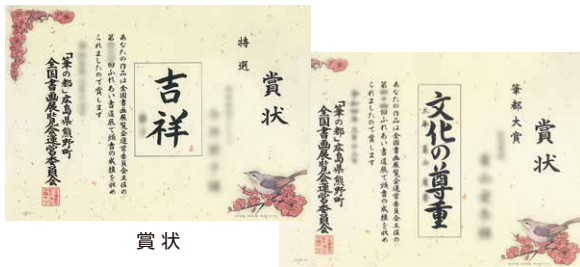 賞状
特選
吉祥
あなたの作品は全国書画展覧会運営委員会主催の
ふれあい書道展で頭書の成績を収め
られましたので賞します
「筆の都」広島県熊野町
全国書画展覧会運営委員会
賞状
筆都大賞
文化の尊重
あなたの作品は全国書画展覧会運営委員会主催の
ふれあい書道展で頭書の成績を収め
られましたので賞します
「筆の都」広島県熊野町
全国書画展覧会運営委員会
賞状